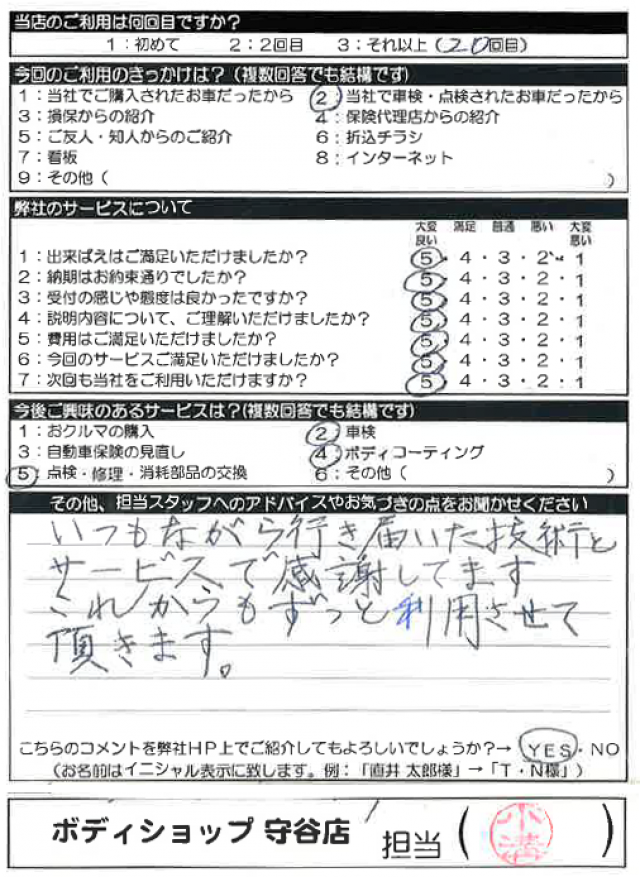 当店のご利用は何回目ですか?
1:初めて 2:2回目 3:それ以上(20回目)
今回のご利用のきっかけは?(複数回答でも結構です)
1:当社でご購入されたお車だったから 2:当社で車検・点検されたお車だったから
3:損保からの紹介 4:保険代理店からの紹介
5:ご友人・知人からのご紹介 6:折込チラシ
7:看板 8:インターネット
9:その他( )
弊社のサービスについて
大変良い 満足 普通 悪い 大変悪い
1:出来ばえはご満足いただけましたか? 5・4・3・2・1
2:納期はお約束通りでしたか? 5・4・3・2・1
3:受付の感じや態度は良かったですか? 5・4・3・2・1
4:説明内容について、ご理解いただけましたか? 5・4・3・2・1
5:費用はご満足いただけましたか? 5・4・3・2・1
6:今回のサービスご満足いただけましたか? 5・4・3・2・1
7:次回も当社をご利用いただけますか? 5・4・3・2・1
今後ご興味のあるサービスは?(複数回答でも結構です)
1:おクルマの購入 2:車検
3:自動車保険の見直し 4:ボディコーティング
5:点検・修理・消耗部品の交換 6:その他( )
その他、担当スタッフへのアドバイスやお気づきの点をお聞かせください
いつもながら行き届いた技術と
サービスで感謝してます
これからもずっと利用させて
頂きます。
こちらのコメントを弊社HP上でご紹介してもよろしいでしょうか?→ YES・NO
(お名前はイニシャル表示に致します。例:「直井 太郎様」→「T・N様」)
ボディショップ 守谷店 担当(小溝)